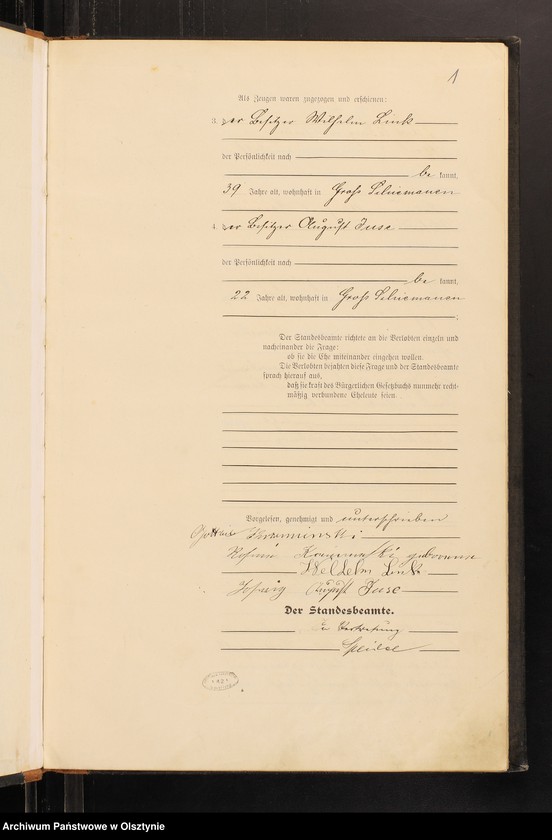 1
Als Zeugen waren zugezogen und erschienen:
3. der Besitzer Wilhelm Link
der Persönlichkeit nach
be kannt,
39 Jahre alt, wohnhaft in Gross
4. der Besitzer August
der Persönlichkeit nach
be kannt,
22 Jahre alt, wohnhaft in Gross
Der Standesbeamte richtete an die Verlobten einzeln und
nacheinander die Frage:
ob sie die Ehe miteinander eingehen wollen.
Die Verlobten bejahten diese Frage und der Standesbeamte
sprach hierauf aus,
daß sie kraft des Bürgerlichen Gesetzbuchs nunmehr recht-
mäßig verbundene Eheleute seien.
Vorgelesen, genehmigt und unterschrieben
Link
August
Der Standesbeamte.
In Vertretung
Archiwum Państwowe w Olsztynie